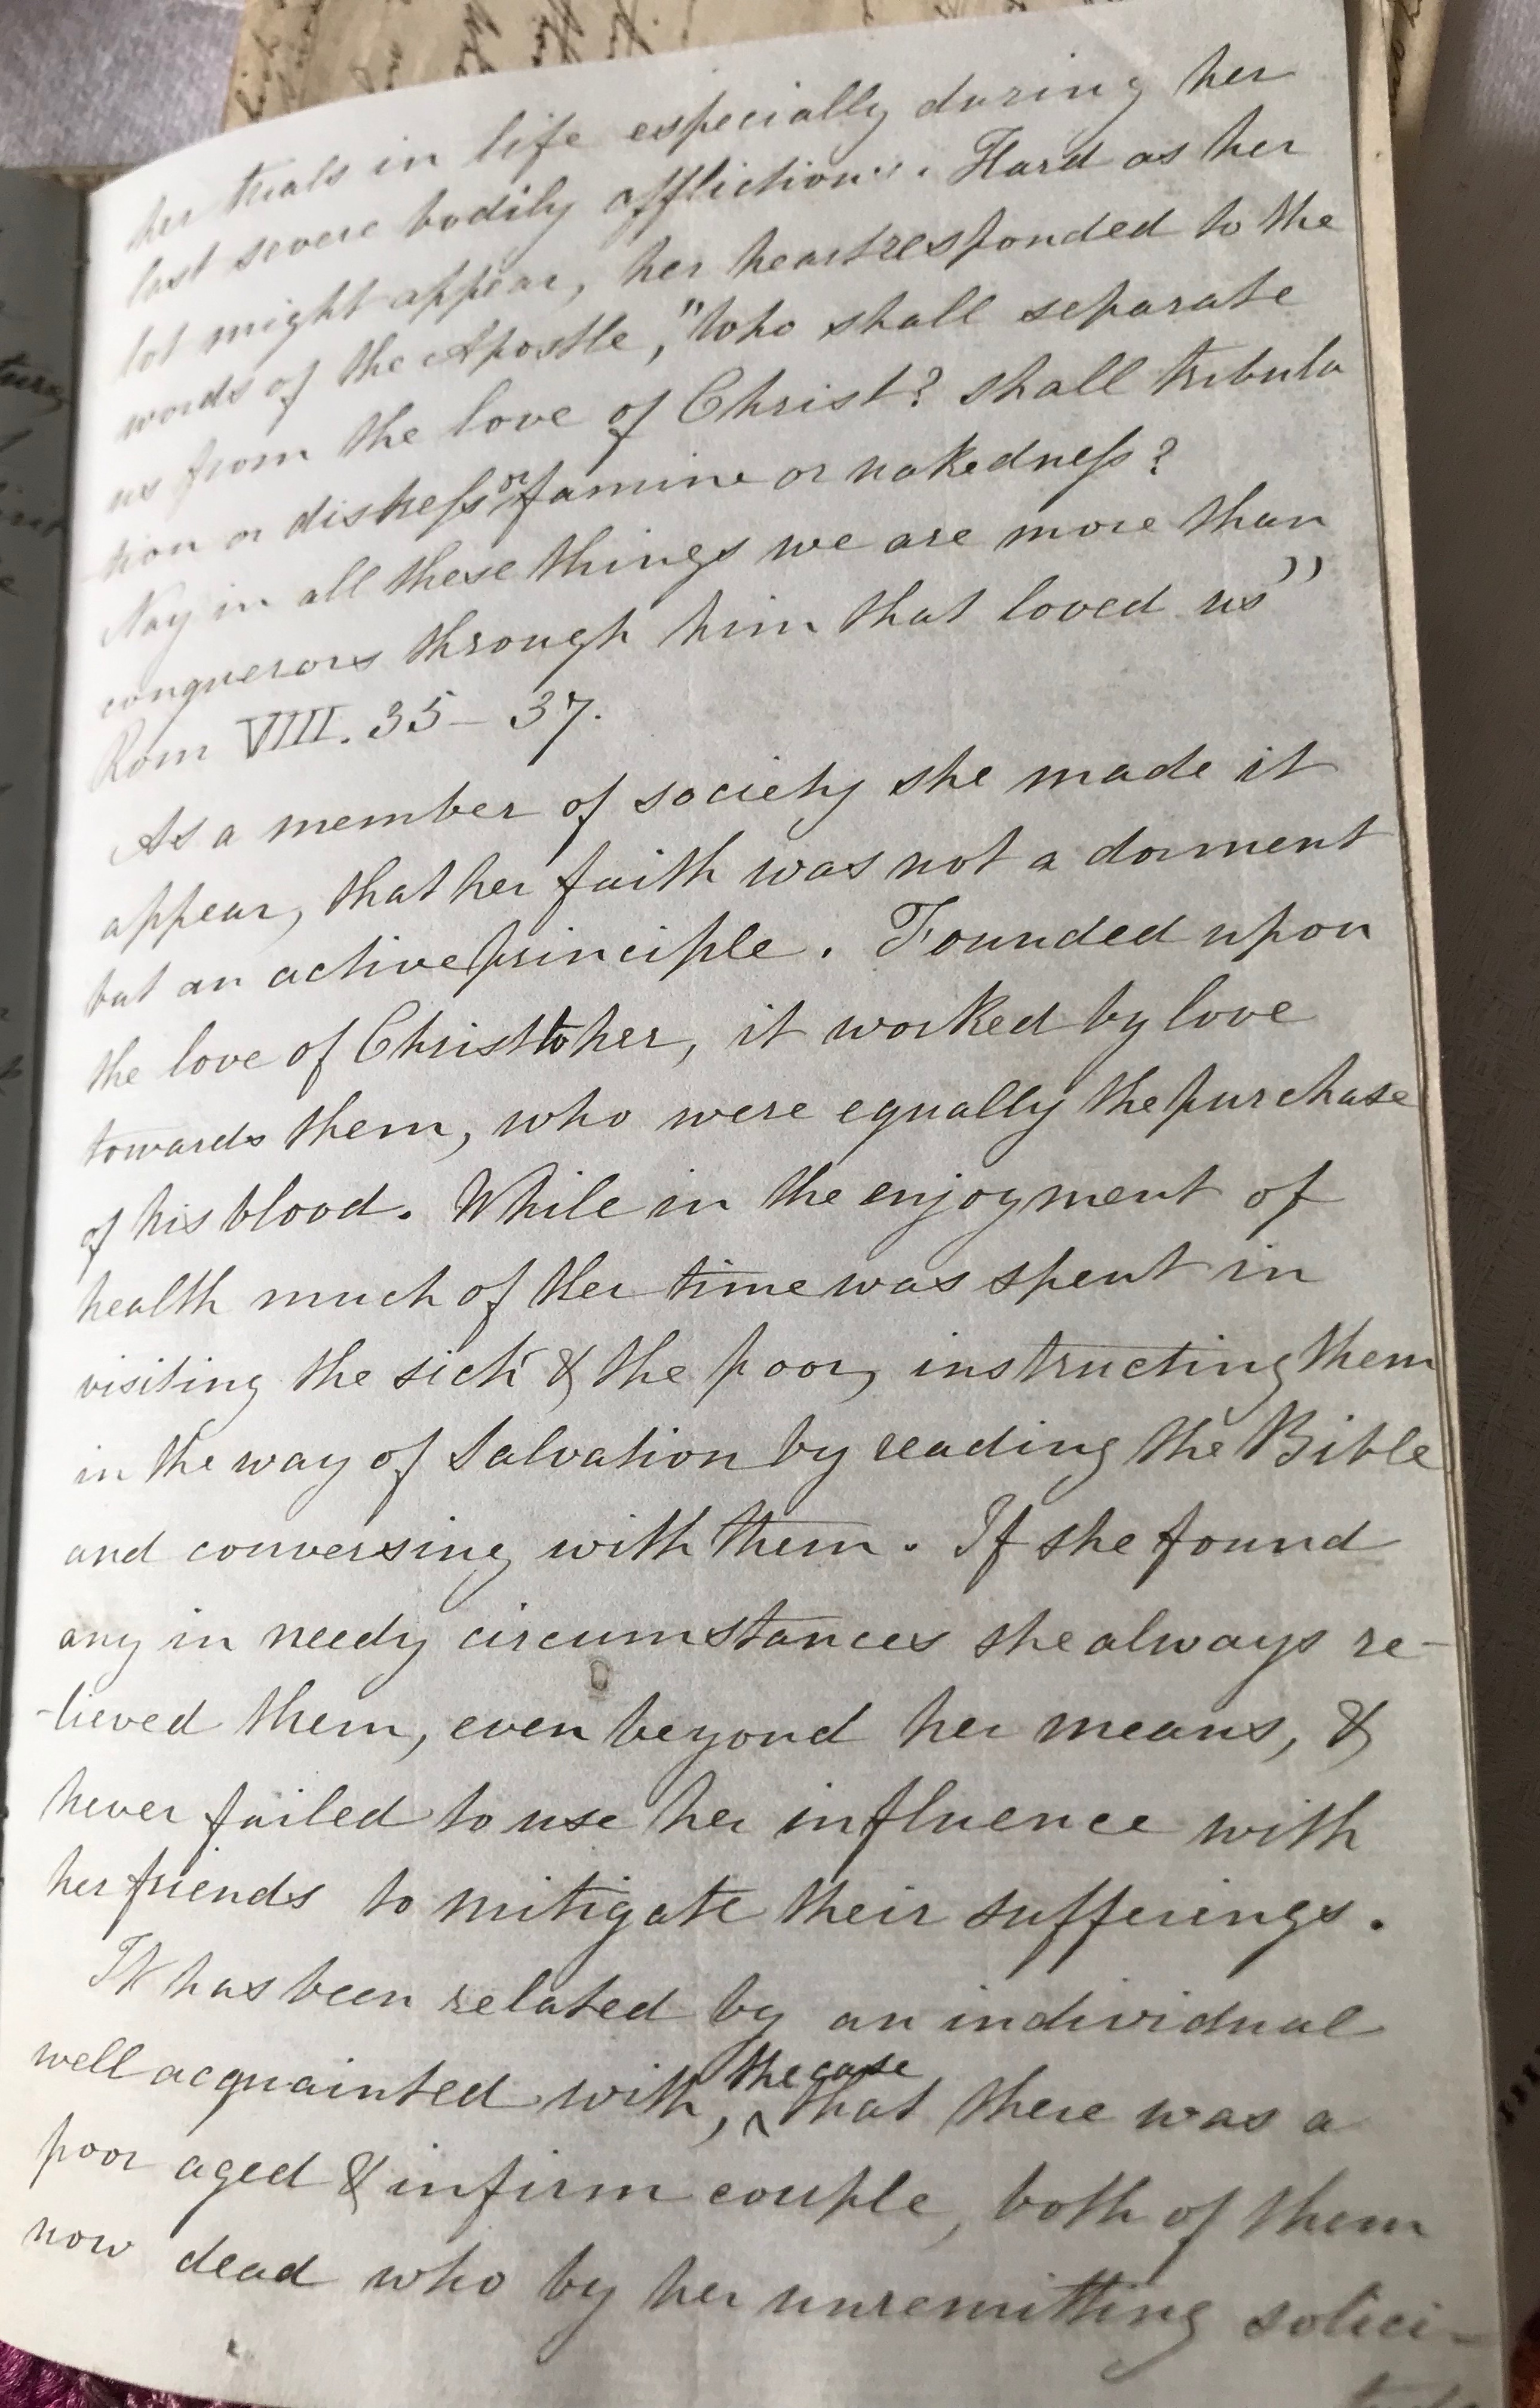 her trials in life especially during her
last severe bodily affliction. Hard as her
lot might appear, her heart responded to the
words of the Apostle, "Who shall separate
us from the love of Christ? shall tribula
tion or distress or famine or nakedness?
Nay in all these things we are more than
conquerors through him that loved us"
Rom VIII. 35 - 37.
As a member of society she made it
appear, that her faith was not a dorment
but an active principle. Founded upon
the love of Christ to her, it worked by love
towards them, who were equally the purchase
of his blood. While in the enjoyment of
health much of her time was spent in
visiting the sick & the poor, instructing them
in the way of Salvation by reading the Bible
and conversing with them. If she found
any in needy circumstances she always re-
-lieved them, even beyond her means, &
never failed to use her influence with
her friends to mitigate their sufferings.
It has been related by an individual
well acquainted with, the case that there was a
poor aged & infirm couple, both of them
now dead who by her unremitting solici-